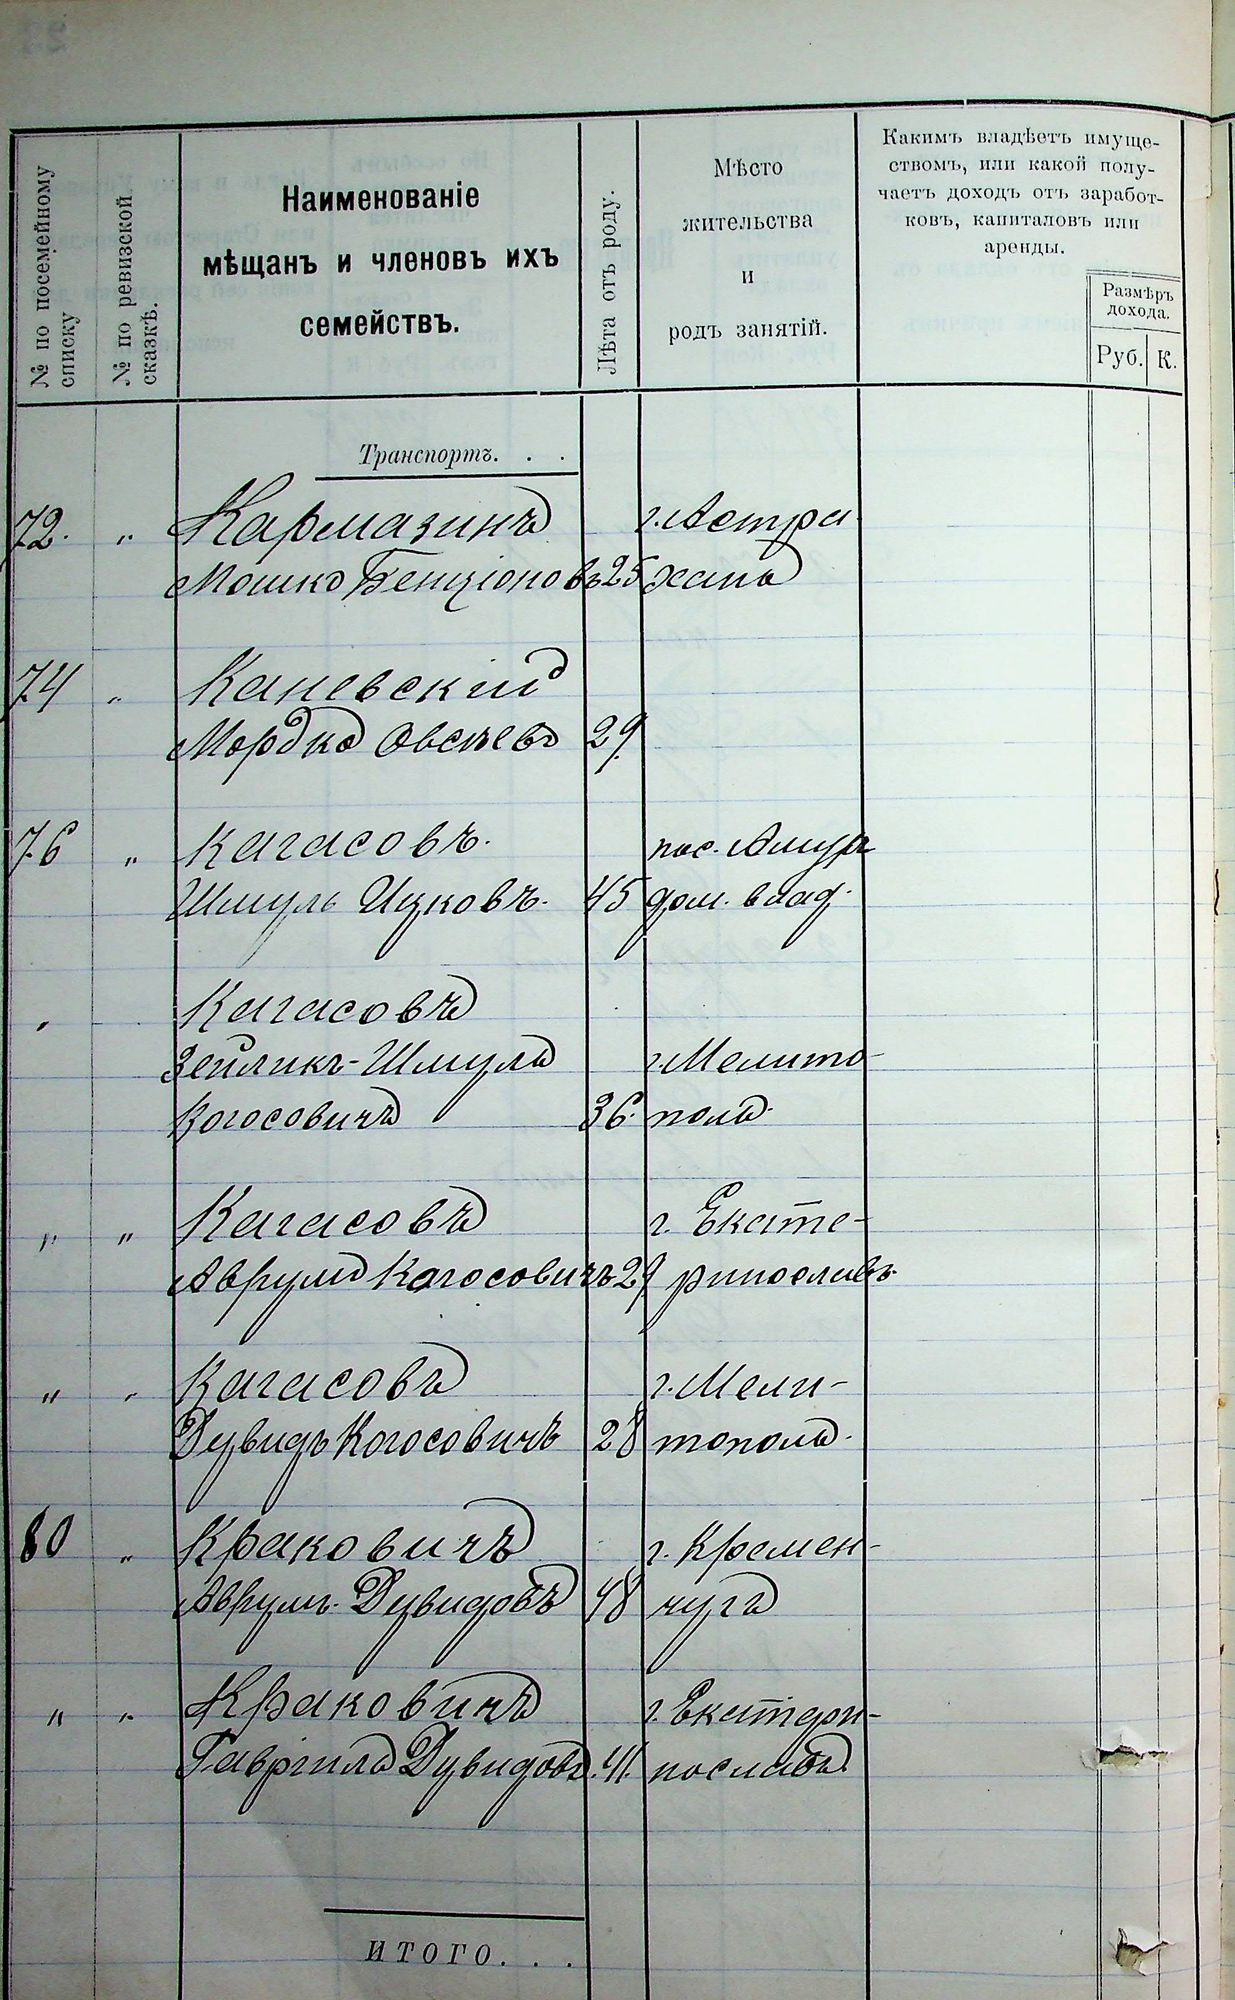 № по посемейному списку
№ по ревизской сказкѣ.
Наименованіе
мѣщанъ и членовъ ихъ
семействъ.
Лѣта отъ роду.
Мѣсто
жительства
и
родъ занятій.
Какимъ владѣетъ имуще-
ствомъ, или какой полу-
чаетъ доходъ отъ заработ-
ковъ, капиталовъ или
аренды.
Размѣръ
дохода.
Руб. К.
Транспортъ. . .
72. „ Кармазинъ г. Астра
Мошко Бенціоновъ 25 хань
74 „ Каневскій
Мордко Овсѣевъ 29
76 „ Кагасовъ. пос. Амура
Шмуль Ицковъ. 45 дом. влад.
„ Кагасовъ
Зейликъ-Шмуль г. Мелито-
Когосовичъ 36. поль.
„ „ Кагасовъ г. Екате-
Аврумъ Кагосовичъ 29 ринославъ.
„ „ Кагасовъ г. Мели-
Дувидъ Когосовичъ 28 тополь.
80 „ Краковичъ г. Кремен-
Аврумъ Дувидовъ 48 чугъ
„ „ Краковичъ г. Екатери-
Гавріилъ Дувидовъ. 41 нославъ.
ИТОГО. . .